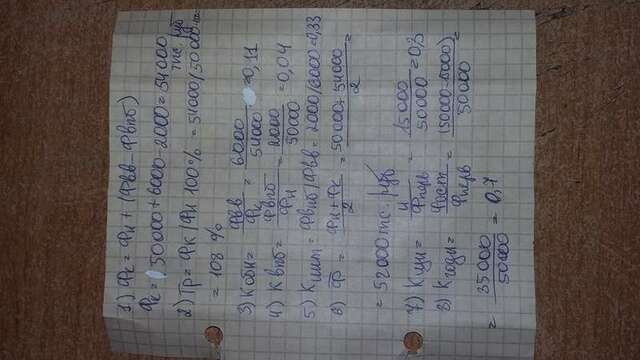 1) Фк = Фн + (Фвв - Фвпб)
Фк = 50000 + 6000 - 2000 = 54000
тыс. руб
2) Тр = Фк / Фн 100% = 54000 / 50000
= 108 %
3) Кобн = Фвв / Фк = 6000 / 54000 = 0,11
4) Квпб = Фвпб / Фн = 2000 / 50000 = 0,04
5) Кинт = Фвпб / Фвв = 2000 / 6000 = 0,33
6) Ф = Фн + Фк / 2 = 50000 + 54000 / 2 =
= 52000 тыс. руб
7) Кизн = И / Фперв = 15000 / 50000 = 0,3
8) Кгодн = Фост / Фперв = (50000 - 15000) / 50000 =
= 35000 / 50000 = 0,7